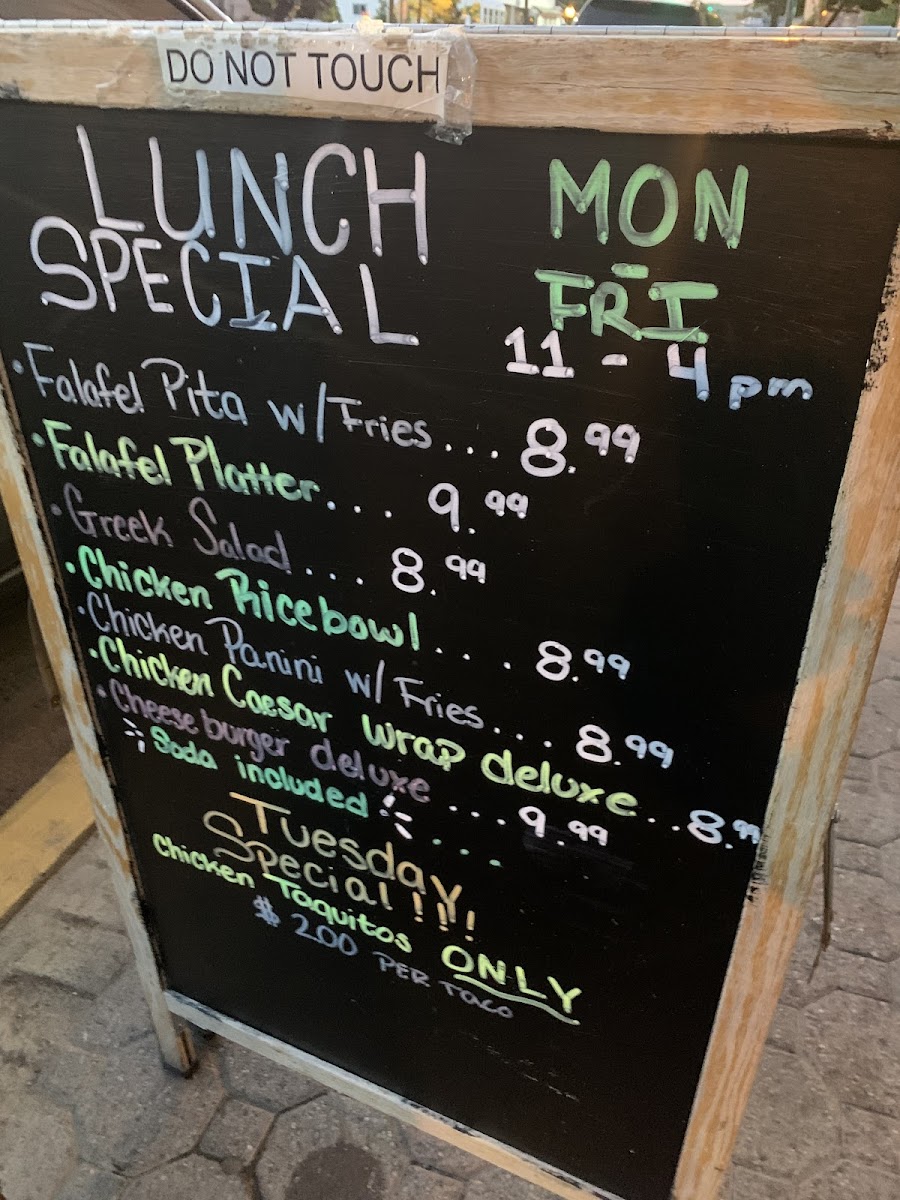 DO NOT TOUCH
LUNCH
SPECIAL
MON
-
FRI
11 - 4 pm
• Falafel Pita w/Fries... 8.99
• Falafel Platter.... 9.99
• Greek Salad.... 8.99
• Chicken Ricebowl.... 8.99
• Chicken Panini w/ Fries.... 8.99
• Chicken Caesar Wrap deluxe... 8.99
• Cheeseburger deluxe .... 9.99
Soda included ...
Tuesday
Special!!!
Chicken Taquitos ONLY
$ 2.00 PER TACO